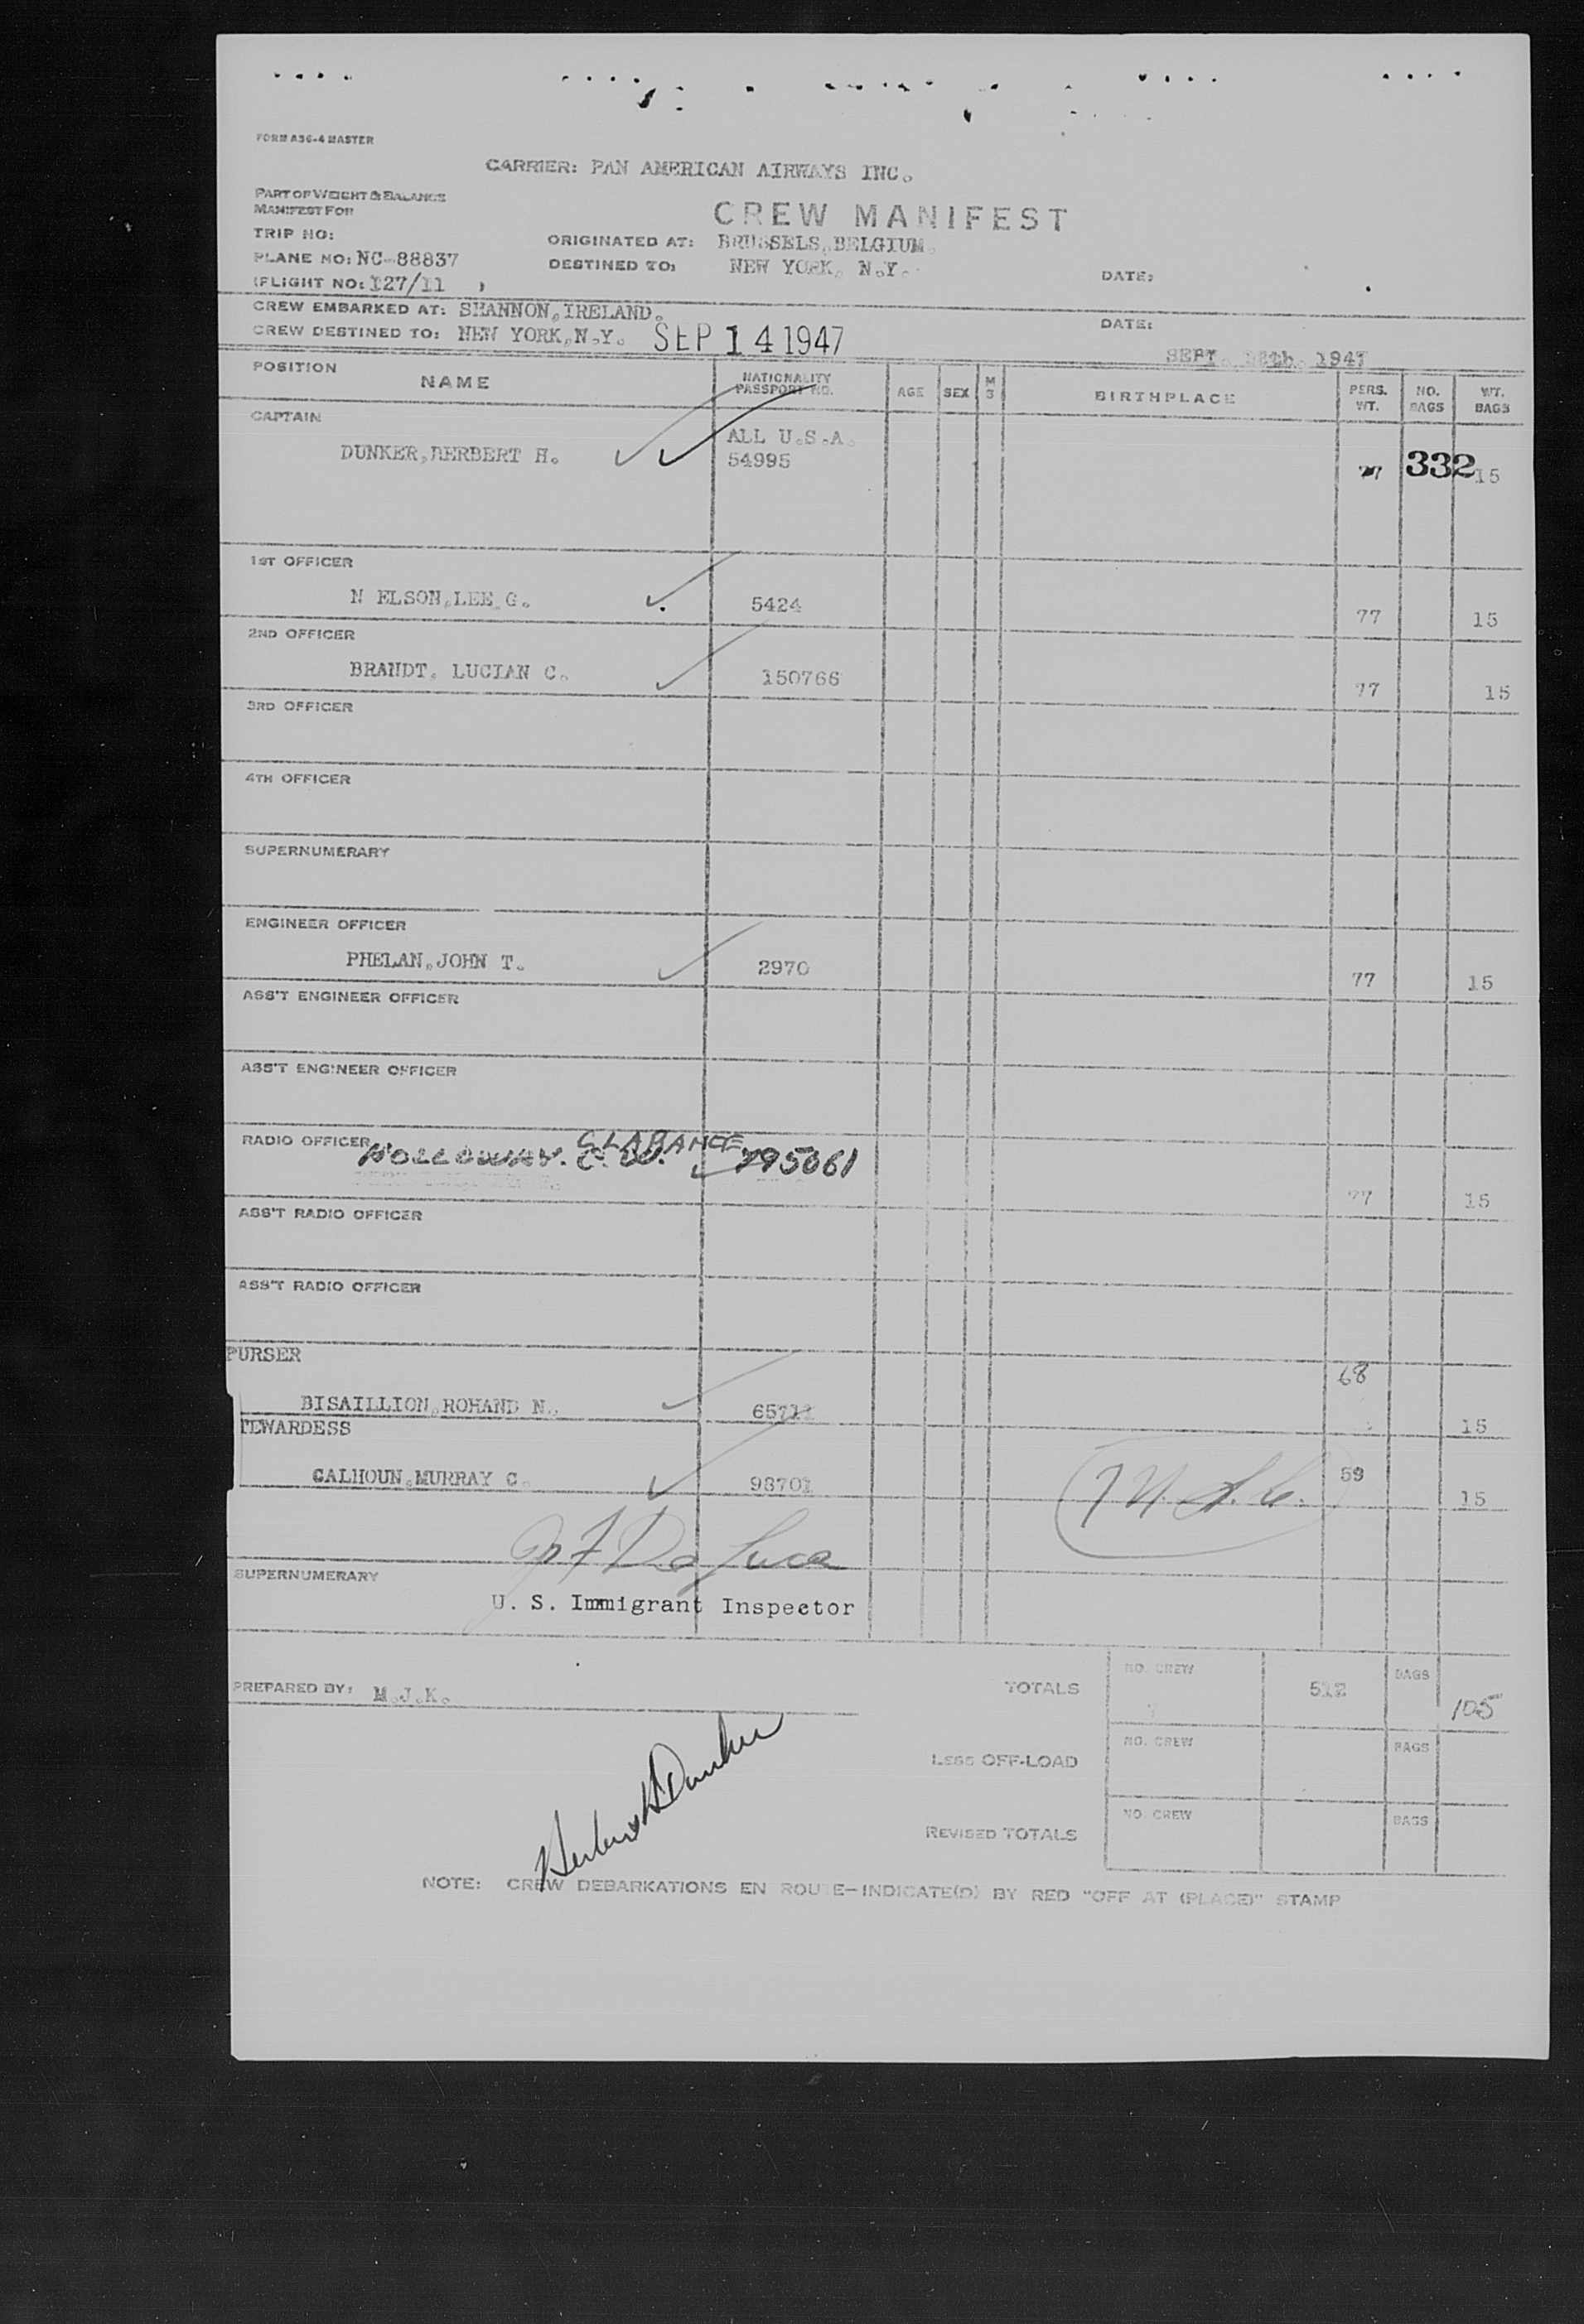 FORM A36-4 MASTER
CARRIER: PAN AMERICAN AIRWAYS INC.
PART OF WEIGHT & BALANCE
MANIFEST FOR
CREW MANIFEST
TRIP NO:
ORIGINATED AT: BRUSSELS, BELGIUM.
PLANE NO: NC-88837
DESTINED TO: NEW YORK, N.Y.
DATE:
(FLIGHT NO: 127/11 )
CREW EMBARKED AT: SHANNON, IRELAND.
DATE:
CREW DESTINED TO: NEW YORK, N.Y. SEP 14 1947
SEPT. 1947
POSITION NAME NATIONALITY PASSPORT NO. AGE SEX M S BIRTHPLACE PERS. WT. NO. BAGS WT. BAGS
CAPTAIN
ALL U.S.A.
DUNKER, HERBERT H. 54995 77 332 15
1ST OFFICER
N ELSON, LEE G. 5424 77 15
2ND OFFICER
BRANDT, LUCIAN C. 150766 77 15
3RD OFFICER
4TH OFFICER
SUPERNUMERARY
ENGINEER OFFICER
PHELAN, JOHN T. 2970 77 15
ASS'T ENGINEER OFFICER
ASS'T ENGINEER OFFICER
RADIO OFFICER
CLARANCE
HOLLOWAY. C. W. 195061
77 15
ASS'T RADIO OFFICER
ASS'T RADIO OFFICER
PURSER
68
BISAILLION, ROHAND N. 15
TEWARDESS
CALHOUN, MURRAY C. 98701 59 15
U. S. Immigrant Inspector
SUPERNUMERARY
PREPARED BY: M.J.K.
TOTALS NO. CREW 512 BAGS 105
LESS OFF-LOAD NO. CREW BAGS
REVISED TOTALS NO. CREW BAGS
Herbert H Dunker
NOTE: CREW DEBARKATIONS EN ROUTE-INDICATE(D) BY RED "OFF AT (PLACE)" STAMP